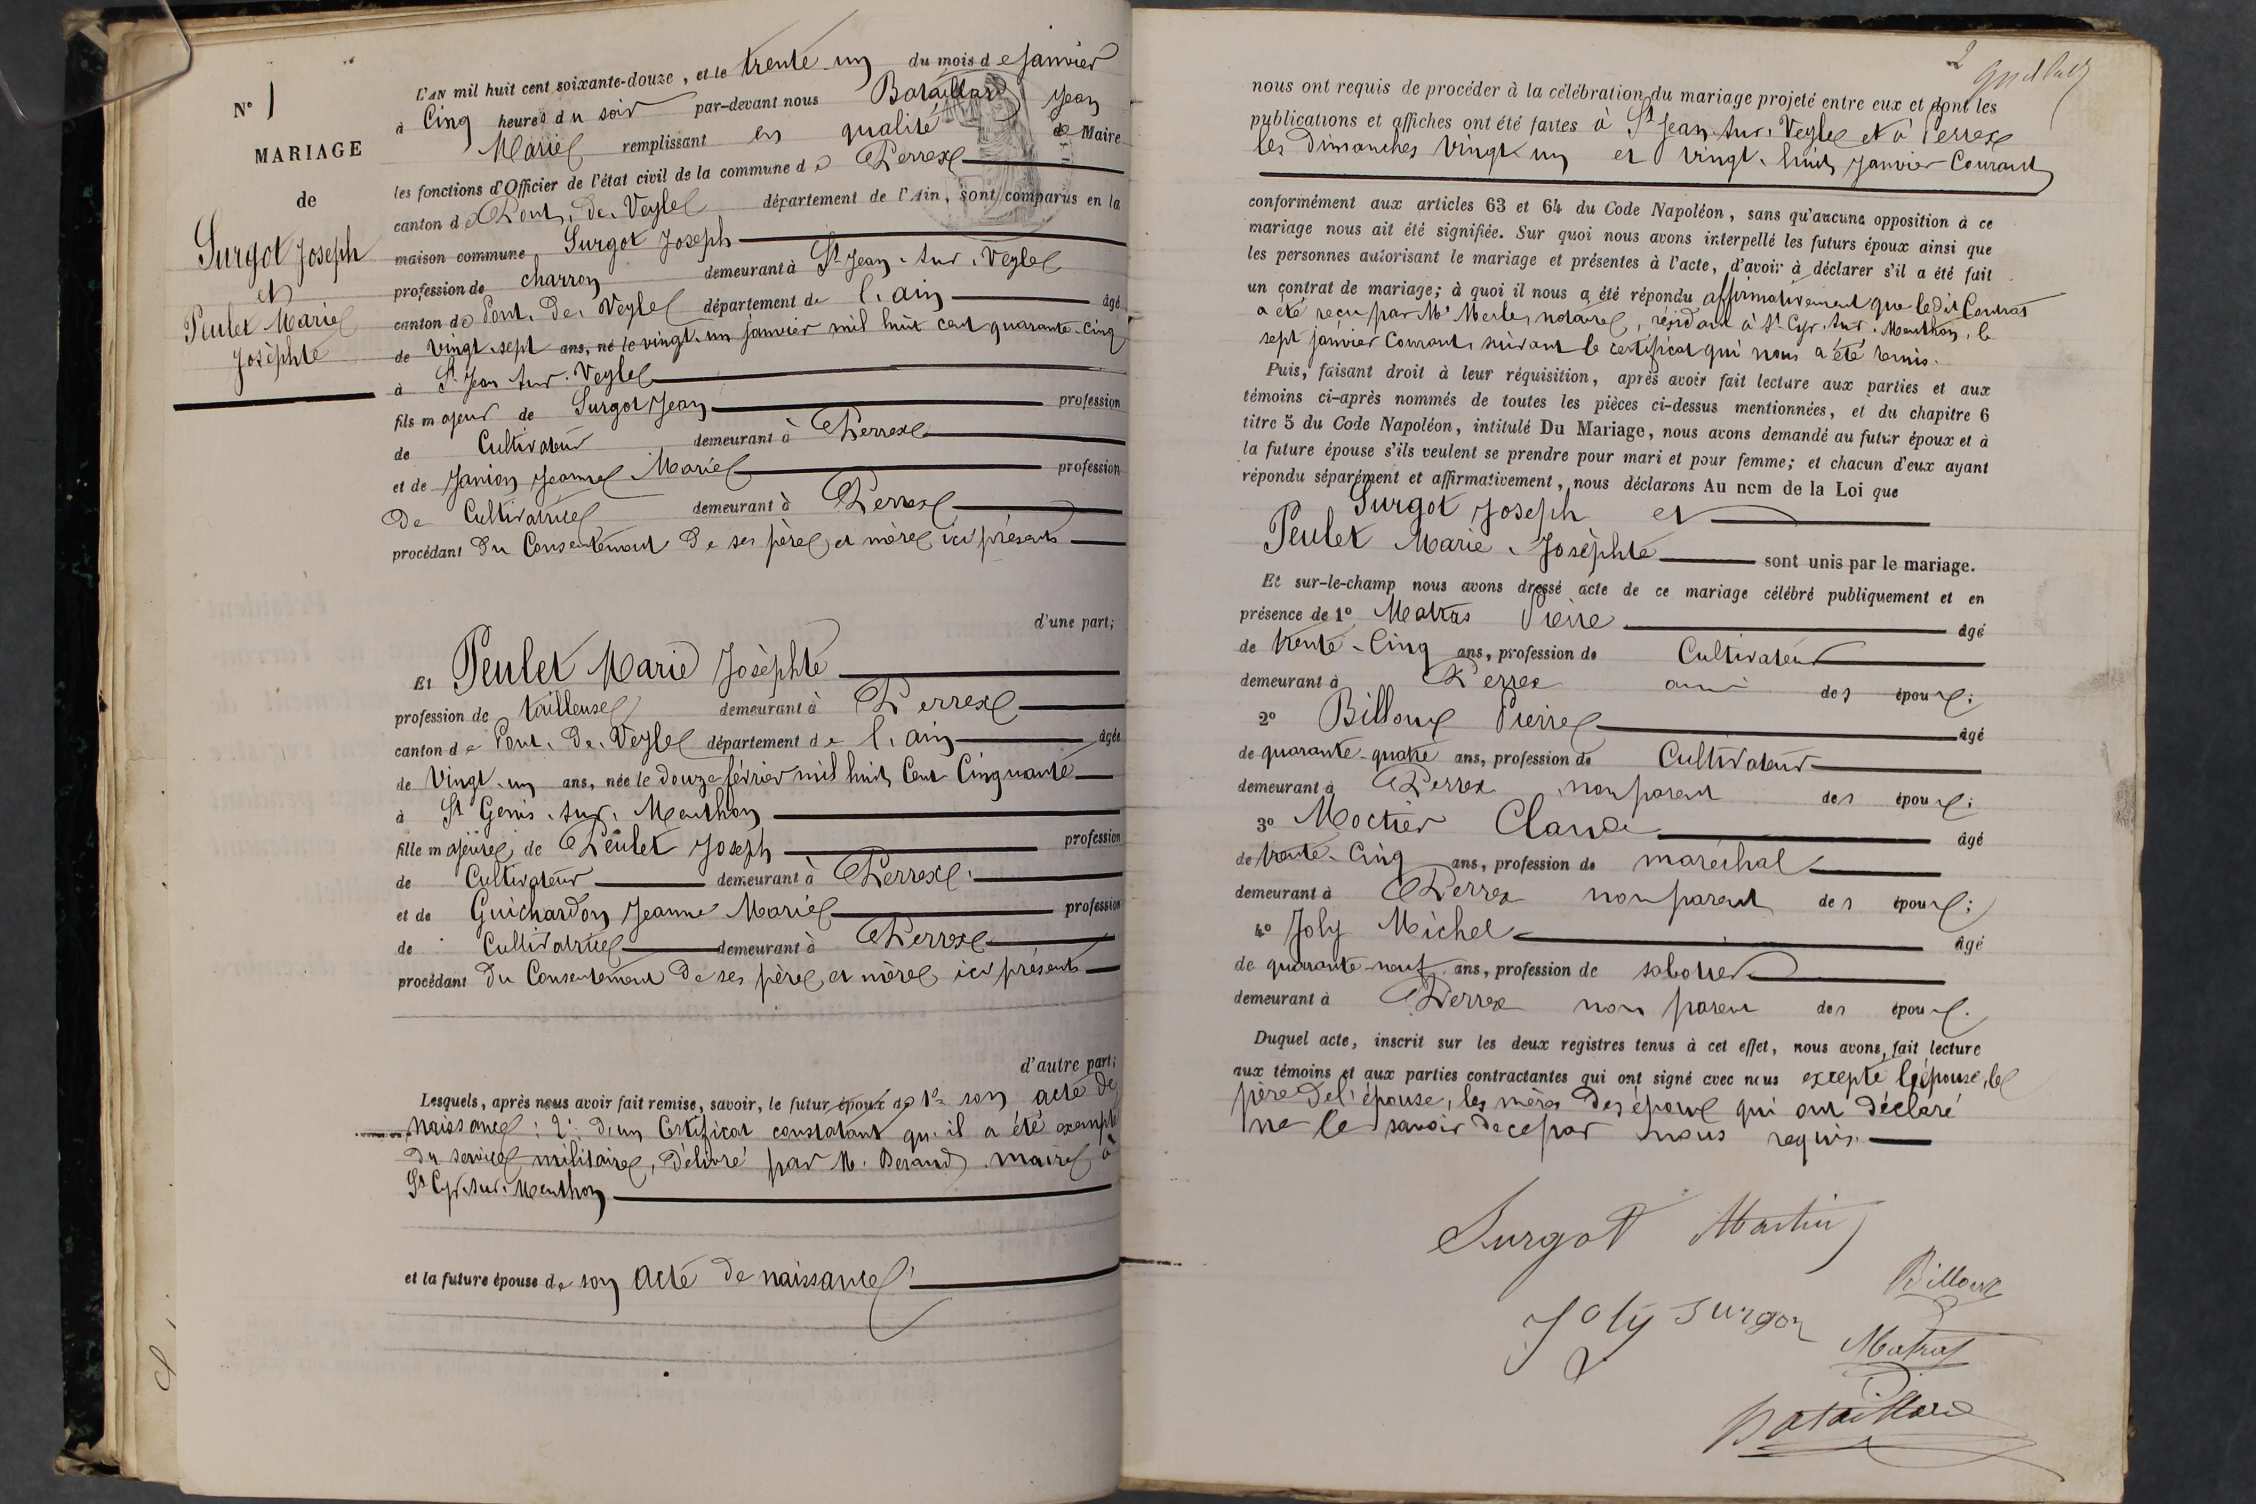 N° 1
MARIAGE
de
Surgot Joseph
et
Peulet Marie
Josèphte
L'AN mil huit cent soixante-douze, et le trente un du mois de janvier
à Cinq heures du soir par-devant nous Bataillard Jean
Marie remplissant en qualité de Maire
les fonctions d'Officier de l'état civil de la commune de Perrex
canton de Pont. De. Veyle département de l'Ain, sont comparus en la
maison commune Surgot Joseph
profession de charron demeurant à St Jean. sur. Veyle
canton de Pont. De. Veyle département de l'ain âgé
de vingt-sept ans, né le vingt-un janvier mil huit cent quarante-cinq
à St Jean sur. Veyle
fils majeur de Surgot Jean profession
de Cultivateur demeurant à Perrex
et de Janion Jeanne Marie profession
De Cultivatrice demeurant à Perrex
procédant Du Consentement De ses père et mère ici présents
d'une part;
Et Peulet Marie Josèphte
profession de tailleuse demeurant à Perrex
canton de Pont. De. Veyle département de l'ain âgée
de Vingt-un ans, née le douze février mil huit Cent Cinquante
à St Genis. sur. Menthon
fille majeure de Peulet Joseph profession
de Cultivateur demeurant à Perrex
et de Guichardon Jeanne Marie profession
de Cultivatrice demeurant à Perrex
procédant Du Consentement De ses père et mère ici présents
d'autre part;
Lesquels, après nous avoir fait remise, savoir, le futur époux de 1° son acte de
naissance; 2° d'un Certificat constatant qu'il a été exempté
du service militaire, Délivré par M. Beraud maire à
St Cyr. sur. Menthon
et la future épouse de son acte de naissance
2
nous ont requis de procéder à la célébration du mariage projeté entre eux et dont les
publications et affiches ont été faites à St Jean. sur. Veyle et à Perrex
les Dimanches Vingt-un et Vingt-huit janvier Courant
conformément aux articles 63 et 64 du Code Napoléon, sans qu'aucune opposition à ce
mariage nous ait été signifiée. Sur quoi nous avons interpellé les futurs époux ainsi que
les personnes autorisant le mariage et présentes à l'acte, d'avoir à déclarer s'il a été fait
un contrat de mariage; à quoi il nous a été répondu affirmativement que ledit Contrat
a été reçu par Me Merle, notaire, résidant à St Cyr. sur. Menthon, le
sept janvier Courant, suivant le certificat qui nous a été remis.
Puis, faisant droit à leur réquisition, après avoir fait lecture aux parties et aux
témoins ci-après nommés de toutes les pièces ci-dessus mentionnées, et du chapitre 6
titre 5 du Code Napoléon, intitulé Du Mariage, nous avons demandé au futur époux et à
la future épouse s'ils veulent se prendre pour mari et pour femme; et chacun d'eux ayant
répondu séparément et affirmativement, nous déclarons Au nom de la Loi que
Surgot Joseph et
Peulet Marie. Josèphte sont unis par le mariage.
Et sur-le-champ nous avons dressé acte de ce mariage célébré publiquement et en
présence de 1° Matras Pierre âgé
de trente-Cinq ans, profession de Cultivateur
demeurant à Perrex ami des époux;
2° Billoux Pierre âgé
de quarante-quatre ans, profession de Cultivateur
demeurant à Perrex non parent des époux;
3° Moctier Claude âgé
de trente-Cinq ans, profession de maréchal
demeurant à Perrex non parent des époux;
4° Joly Michel âgé
de quarante-neuf ans, profession de sabotier
demeurant à Perrex non parent des époux.
Duquel acte, inscrit sur les deux registres tenus à cet effet, nous avons fait lecture
aux témoins et aux parties contractantes qui ont signé avec nous excepté l'épouse, le
père De l'épouse, les mères Des époux qui ont Déclaré
ne le savoir De ce par nous requis.
Surgot Martin
Billoux
Joly Surgot
Matras
Bataillard